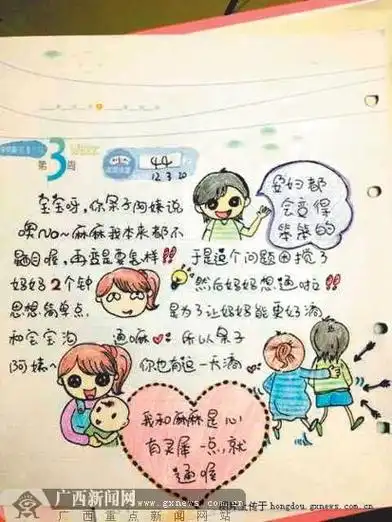 第3周
Week
44
12.3.20
孕妇都
会变得
笨笨的
宝宝呀,你呆子阿姨说
噢No~麻麻我本来都不
聪目喔,再变是要怎样!!
于是这个问题困扰了
妈妈2个钟
然后妈妈想通啦!!
思想简单点,
是为了让妈妈能更好滴
和宝宝沟
通嘛
所以呆子
阿姨~
你也有这一天滴
我和麻麻是心
有灵犀一点就
通喔
广西新闻网
www.gxnews.com.cn
广西重点新闻网站
宣传于 hongdou.gxnews.com.cn